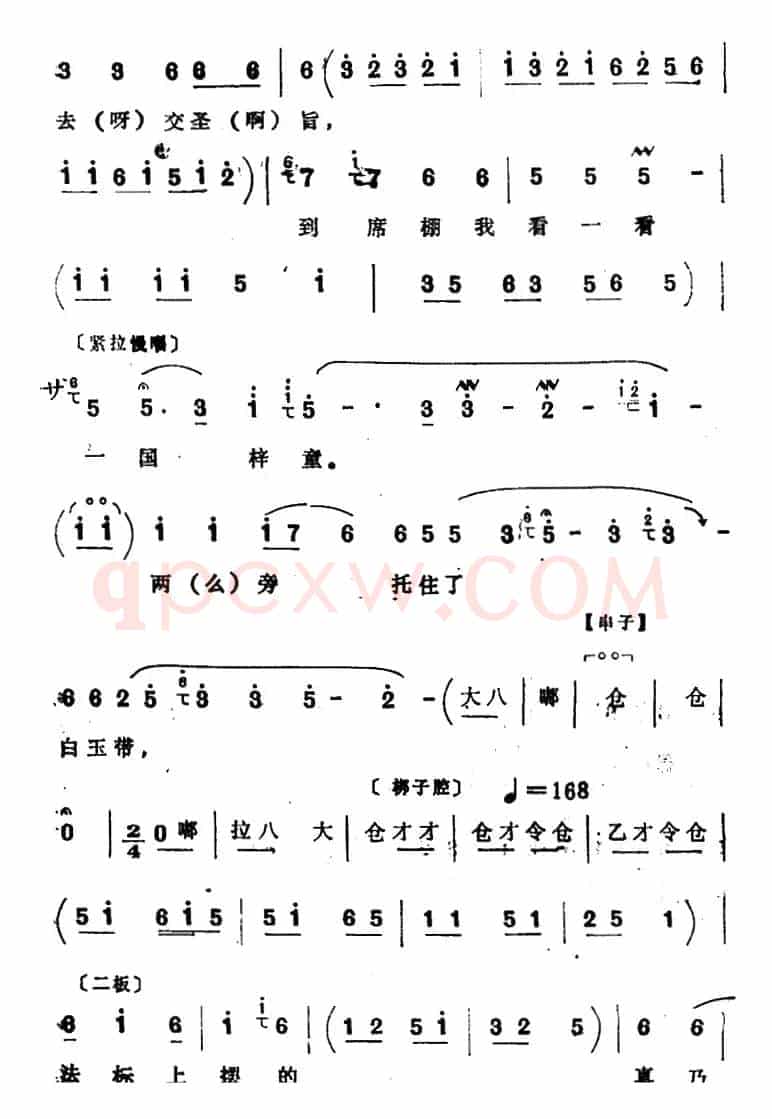 3 3 6 6 6 | 6 ( 3 2 3 2 1 | 1 3 2 1 6 2 5 6
去（呀）交圣（啊）旨，
1 1 6 1 5 1 2 ) | 7 7 6 6 | 5 5 5 - |
到席棚我看一看
( 1 1 1 5 1 | 3 5 6 3 5 6 5 ) |
〔紧拉慢唱〕
サ 5 5 . 3 1 5 - . 3 3 - 2 - 1 -
一国梓童。
( 1 1 ) 1 1 1 7 6 6 5 5 3 5 - 3 3 -
两（么）旁 托住了
qpcxw.COM
【串子】
6 6 2 5 3 3 5 - 2 - ( 大八 | 嘟 | 仓 | 仓 |
白玉带，
〔梆子腔〕 ♩=168
0 | 2/4 0 嘟 | 拉八 大 | 仓才才 | 仓才令仓 | 乙才令仓 |
( 5 1 6 1 5 | 5 1 6 5 | 1 1 5 1 | 2 5 1 ) |
〔二板〕
6 1 6 | 1 6 | ( 1 2 5 1 | 3 2 5 ) | 6 6
法标上摆的 真乃